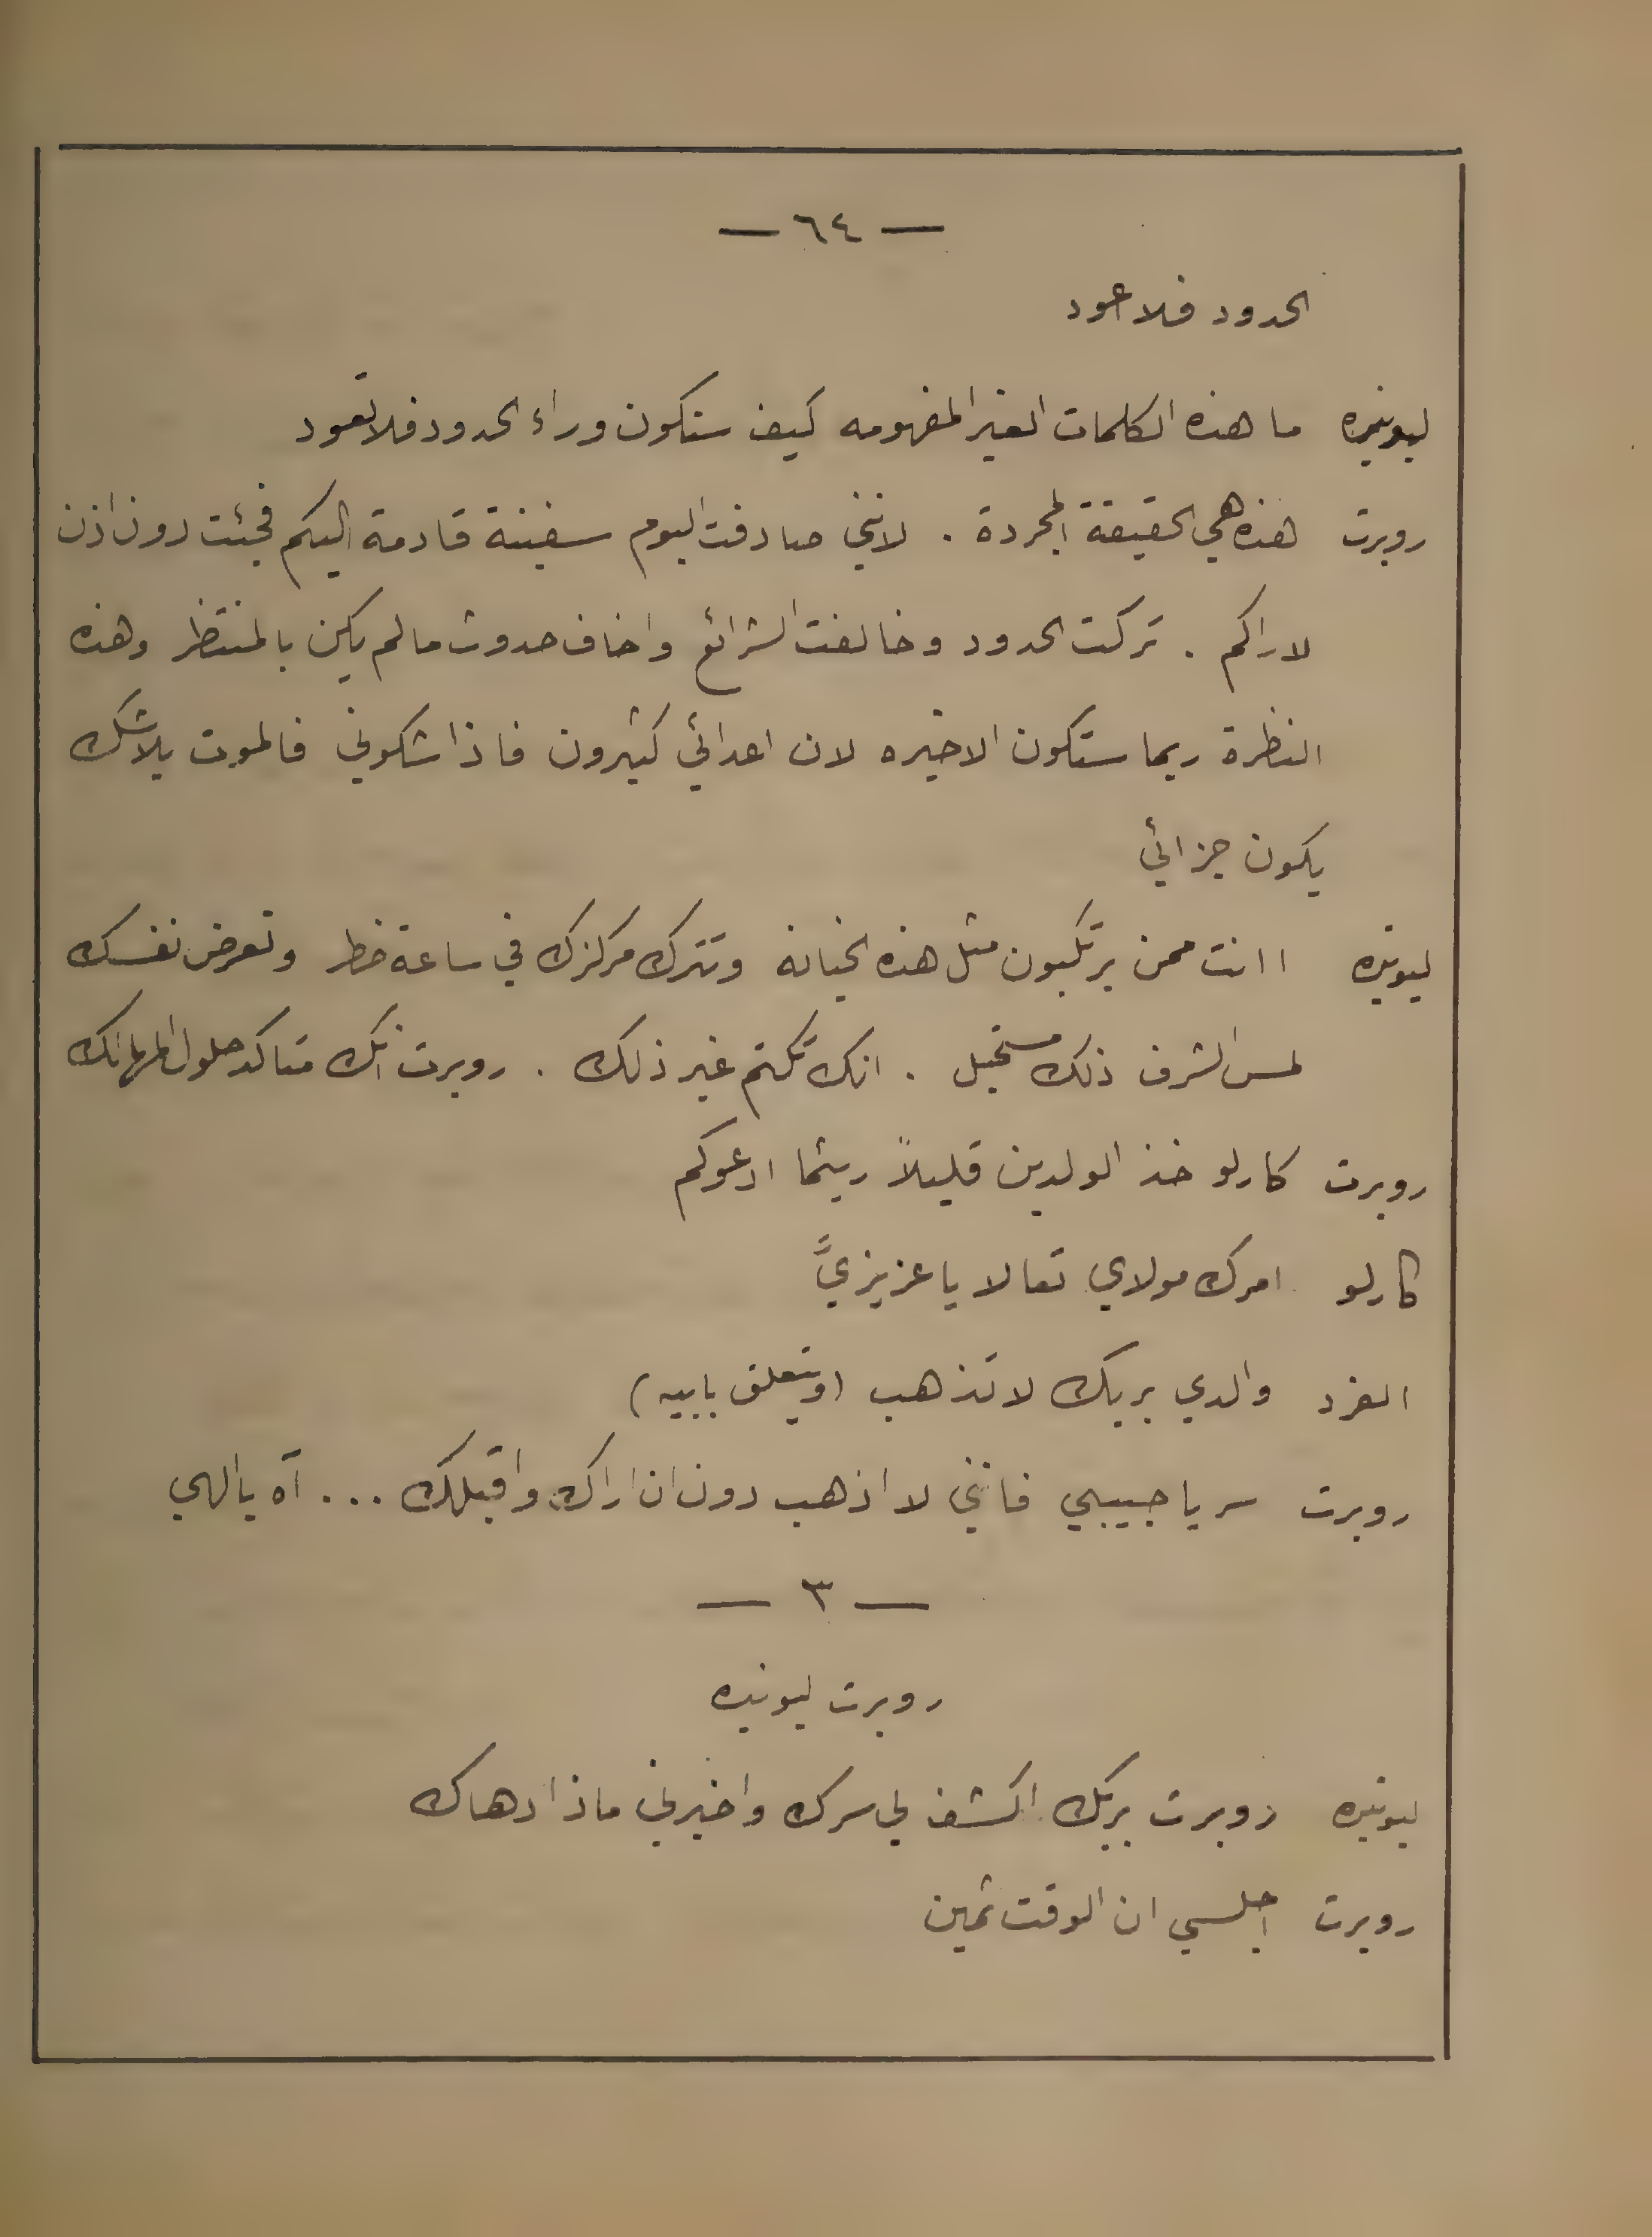 — ٦٤ —
الحدود فلا اعود
ليونيره ما هذه الكلمات الغير المفهومه كيف ستكون وراء الحدود فلا تعود
روبرت هذه هي الحقيقة المجردة . لانني صادفت اليوم سفينة قادمة اليكم فجئت دون اذن
لاراكم . تركت الحدود وخالفت الشرائع واخاف حدوث ما لم يكن بالمنتظر وهذه
النظرة ربما ستكون الاخيره لان اعدائي كثيرون فاذا شكوني فالموت بلا شك
يكون جزائي
ليونيره اانت ممن يرتكبون مثل هذه الخيانة وتترك مركزك في ساعة خطر وتعرض نفسك
لمس الشرف ذلك مستحيل . انك تكتم غير ذلك . روبرت انك متاكد حلول
روبرت كارلو خذ الولدين قليلاً ريثما ادعوكم
كارلو امرك مولاي تعالا يا عزيزيَّ
الفرد والدي بربك لا تذهب (ويتعلق بابيه)
روبرت سر يا حبيبي فانني لا اذهب دون ان اراك واقبلك ... آه يا الهي
— ٣ —
روبرت ليونيره
ليونيره روبرت بربك اكشف لي سرك واخبرني ماذا دهاك
روبرت اجلسي ان الوقت ثمين